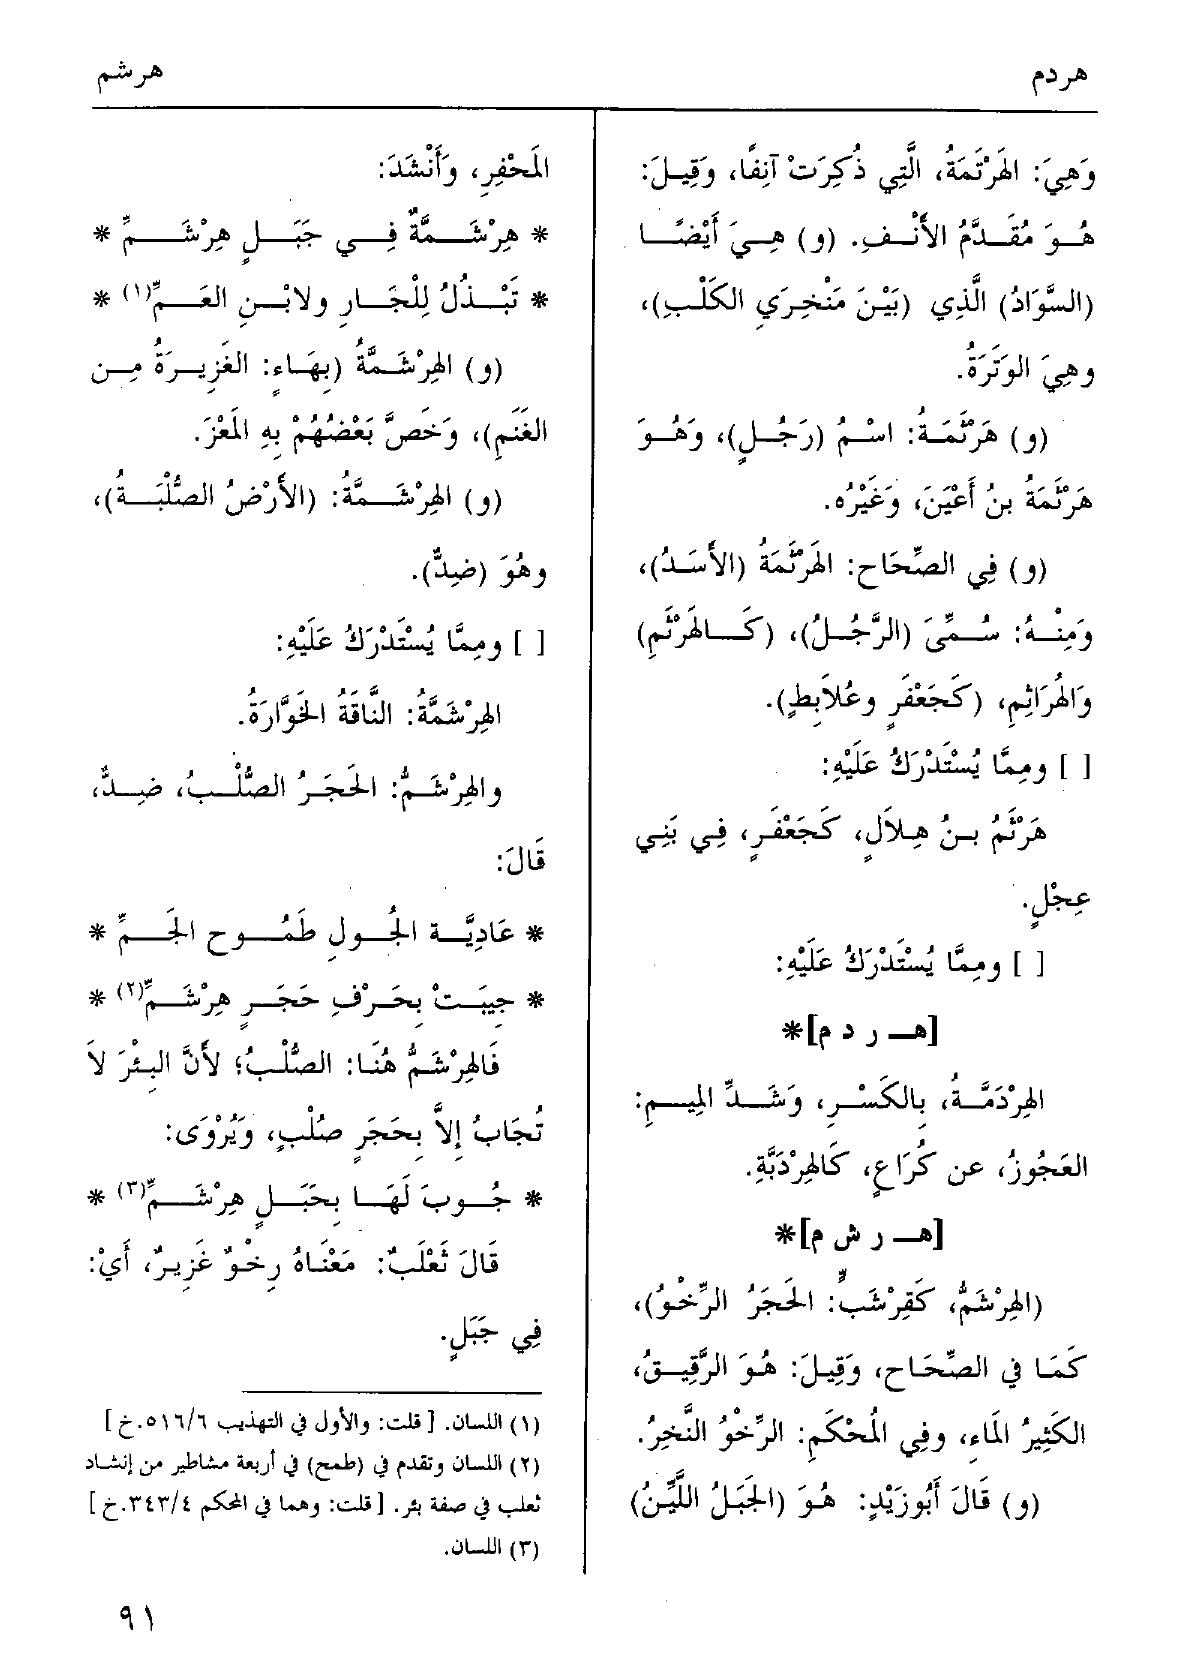 هردم
هرشم
وَهِيَ: الهَرْثَمَةُ، الَّتِي ذُكِرَتْ آنِفًا، وَقِيلَ:
هُـوَ مُقَـدَّمُ الأَنْـفِ. (و) هِـيَ أَيْضًـا
(السَّوَادُ) الَّذِي (بَيْنَ مَنْخِرَيِ الكَلْبِ)،
وهِيَ الوَتَرَةُ.
(و) هَرْثَمَـةُ: اسْـمُ (رَجُـلٍ)، وَهُـوَ
هَرْثَمَةُ بنُ أَعْيَنَ، وَغَيْرُه.
(و) فِي الصِّحَاحِ: الهَرْثَمَةُ (الأَسَـدُ)،
وَمِنْـهُ: سُـمِّىَ (الرَّجُـلُ)، (كَـالهَرْثَمِ)
وَالهُرَاثِمِ، (كَجَعْفَرٍ وعُلاَبِطٍ).
[ ] ومِمَّا يُسْتَدْرَكُ عَلَيْهِ:
هَرْثَمُ بـنُ هِـلاَلٍ، كَجَعْفَـرٍ، فِـي بَنِي
عِجْلٍ.
[ ] ومِمَّا يُسْتَدْرَكُ عَلَيْهِ:
[هـ ر د م]*
الهِرْدَمَّـةُ، بِالكَسْـرِ، وَشَـدِّ المِيـمِ:
العَجُوزُ، عن كُرَاعٍ، كَالهِرْدَبَّةِ.
[هـ ر ش م]*
(الهِرْشَمُّ، كَقِرْشَبٍّ: الحَجَرُ الرِّخْوُ)،
كَمَا فِي الصِّحَاحِ، وَقِيلَ: هُـوَ الرَّقِيـقُ،
الكَثِيرُ المَاءِ، وفِي المُحْكَمِ: الرِّخْوُ النَّخِرُ.
(و) قَالَ أَبُوزَيْدٍ: هُـوَ (الجَبَلُ اللَّيِّنُ)
المَحْفِرِ، وَأَنْشَدَ:
* هِرْشَـمَّةٌ فِـي جَبَـلٍ هِرْشَـمِّ *
* تَبْـذُلُ لِلْجَـارِ ولابْـنِ العَـمِّ(١) *
(و) الهِرْشَـمَّةُ (بِهَـاءٍ: الغَزِيـرَةُ مِـن
الغَنَمِ)، وَخَصَّ بَعْضُهُمْ بِهِ المَعْزَ.
(و) الهِرْشَـمَّةُ: (الأَرْضُ الصُّلْبَـةُ)،
وهُوَ (ضِدٌّ).
[ ] ومِمَّا يُسْتَدْرَكُ عَلَيْهِ:
الهِرْشَمَّةُ: النَّاقَةُ الخَوَّارَةُ.
والهِرْشَـمُّ: الحَجَـرُ الصُّلْـبُ، ضِـدٌّ،
قَالَ:
* عَادِيَّـة الجُـولِ طَمُـوح الجَـمِّ *
* جِيبَـتْ بِحَـرْفِ حَجَـرٍ هِرْشَـمِّ(٢) *
فَالهِرْشَـمُّ هُنَـا: الصُّلْـبُ؛ لأَنَّ البِئْـرَ لاَ
تُجَابُ إِلاَّ بِحَجَرٍ صُلْبٍ، وَيُرْوَى:
* جُـوبَ لَهَـا بِجَبَـلٍ هِرْشَـمِّ(٣) *
قَالَ ثَعْلَبٌ: مَعْنَـاهُ رِخْـوٌ غَزِيـرٌ، أَيْ:
فِي جَبَلٍ.
(١) اللسان. [ قلت: والأول في التهذيب ٥١٦/٦.خ ]
(٢) اللسان وتقدم في (طمح) في أربعة مشاطير من إنشاد
ثعلب في صفة بئر. [ قلت: وهما في المحكم ٣٤٣/٤.خ ]
(٣) اللسان.
٩١